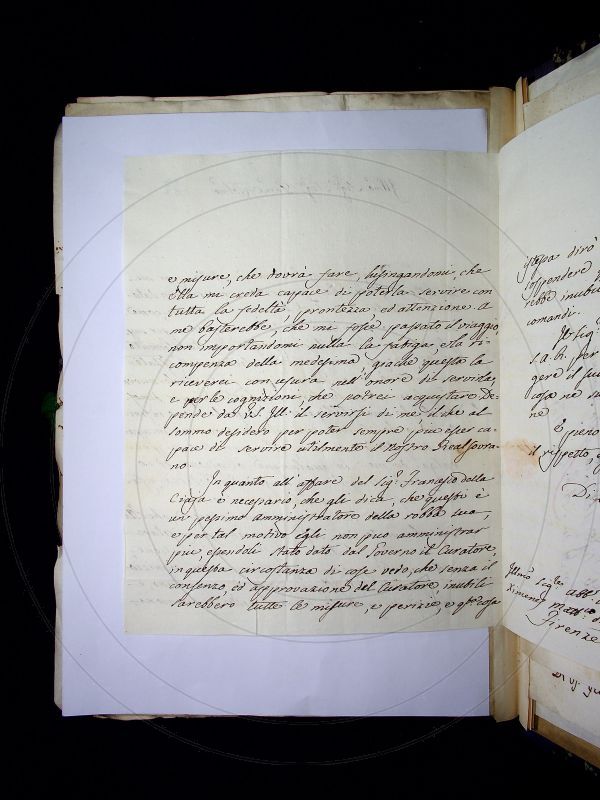 e misure, che dovrà fare, lusingandomi, che
Ella mi creda capace di poterla servire con
tutta la fedeltà, prontezza, ed attenzione. A
me basterebbe, che mi fosse passato il viaggio,
non importandomi nulla la fatiga, e la ri
compenza della medesima, giacche questa la
riceverei con usura nell'onore di servirla,
e per le cognizioni, che potrei acquistare. De
pende da V.S. Ill: il servirsi di me il che al
sommo desidero per poter sempre più esser ca
pace di servire utilmente il Nostro Real Sovra
no.
In quanto all'affare del Sig.r Francesco della
Ciaja è necessario, che gli dica, che questi è
un pessimo amministratore della robba sua,
e per tal motivo egli non può amministrar
più, essendoli stato dato dal Governo il Curatore,
in questa circostanza di cose vedo, che senza il
consenzo, ed approvazione del Curatore, inutili
sarebbero tutte le misure, e perizie, e q.ta cosa
istessa dirò
sospendere
ribbe inutile
comandi.
S.A.R. per
gere il su
cosa ne su
ne
E pieno
il rispetto,
Di
Illmo Sig.re Abb.e
Ximenes Matt.co di
Firenze